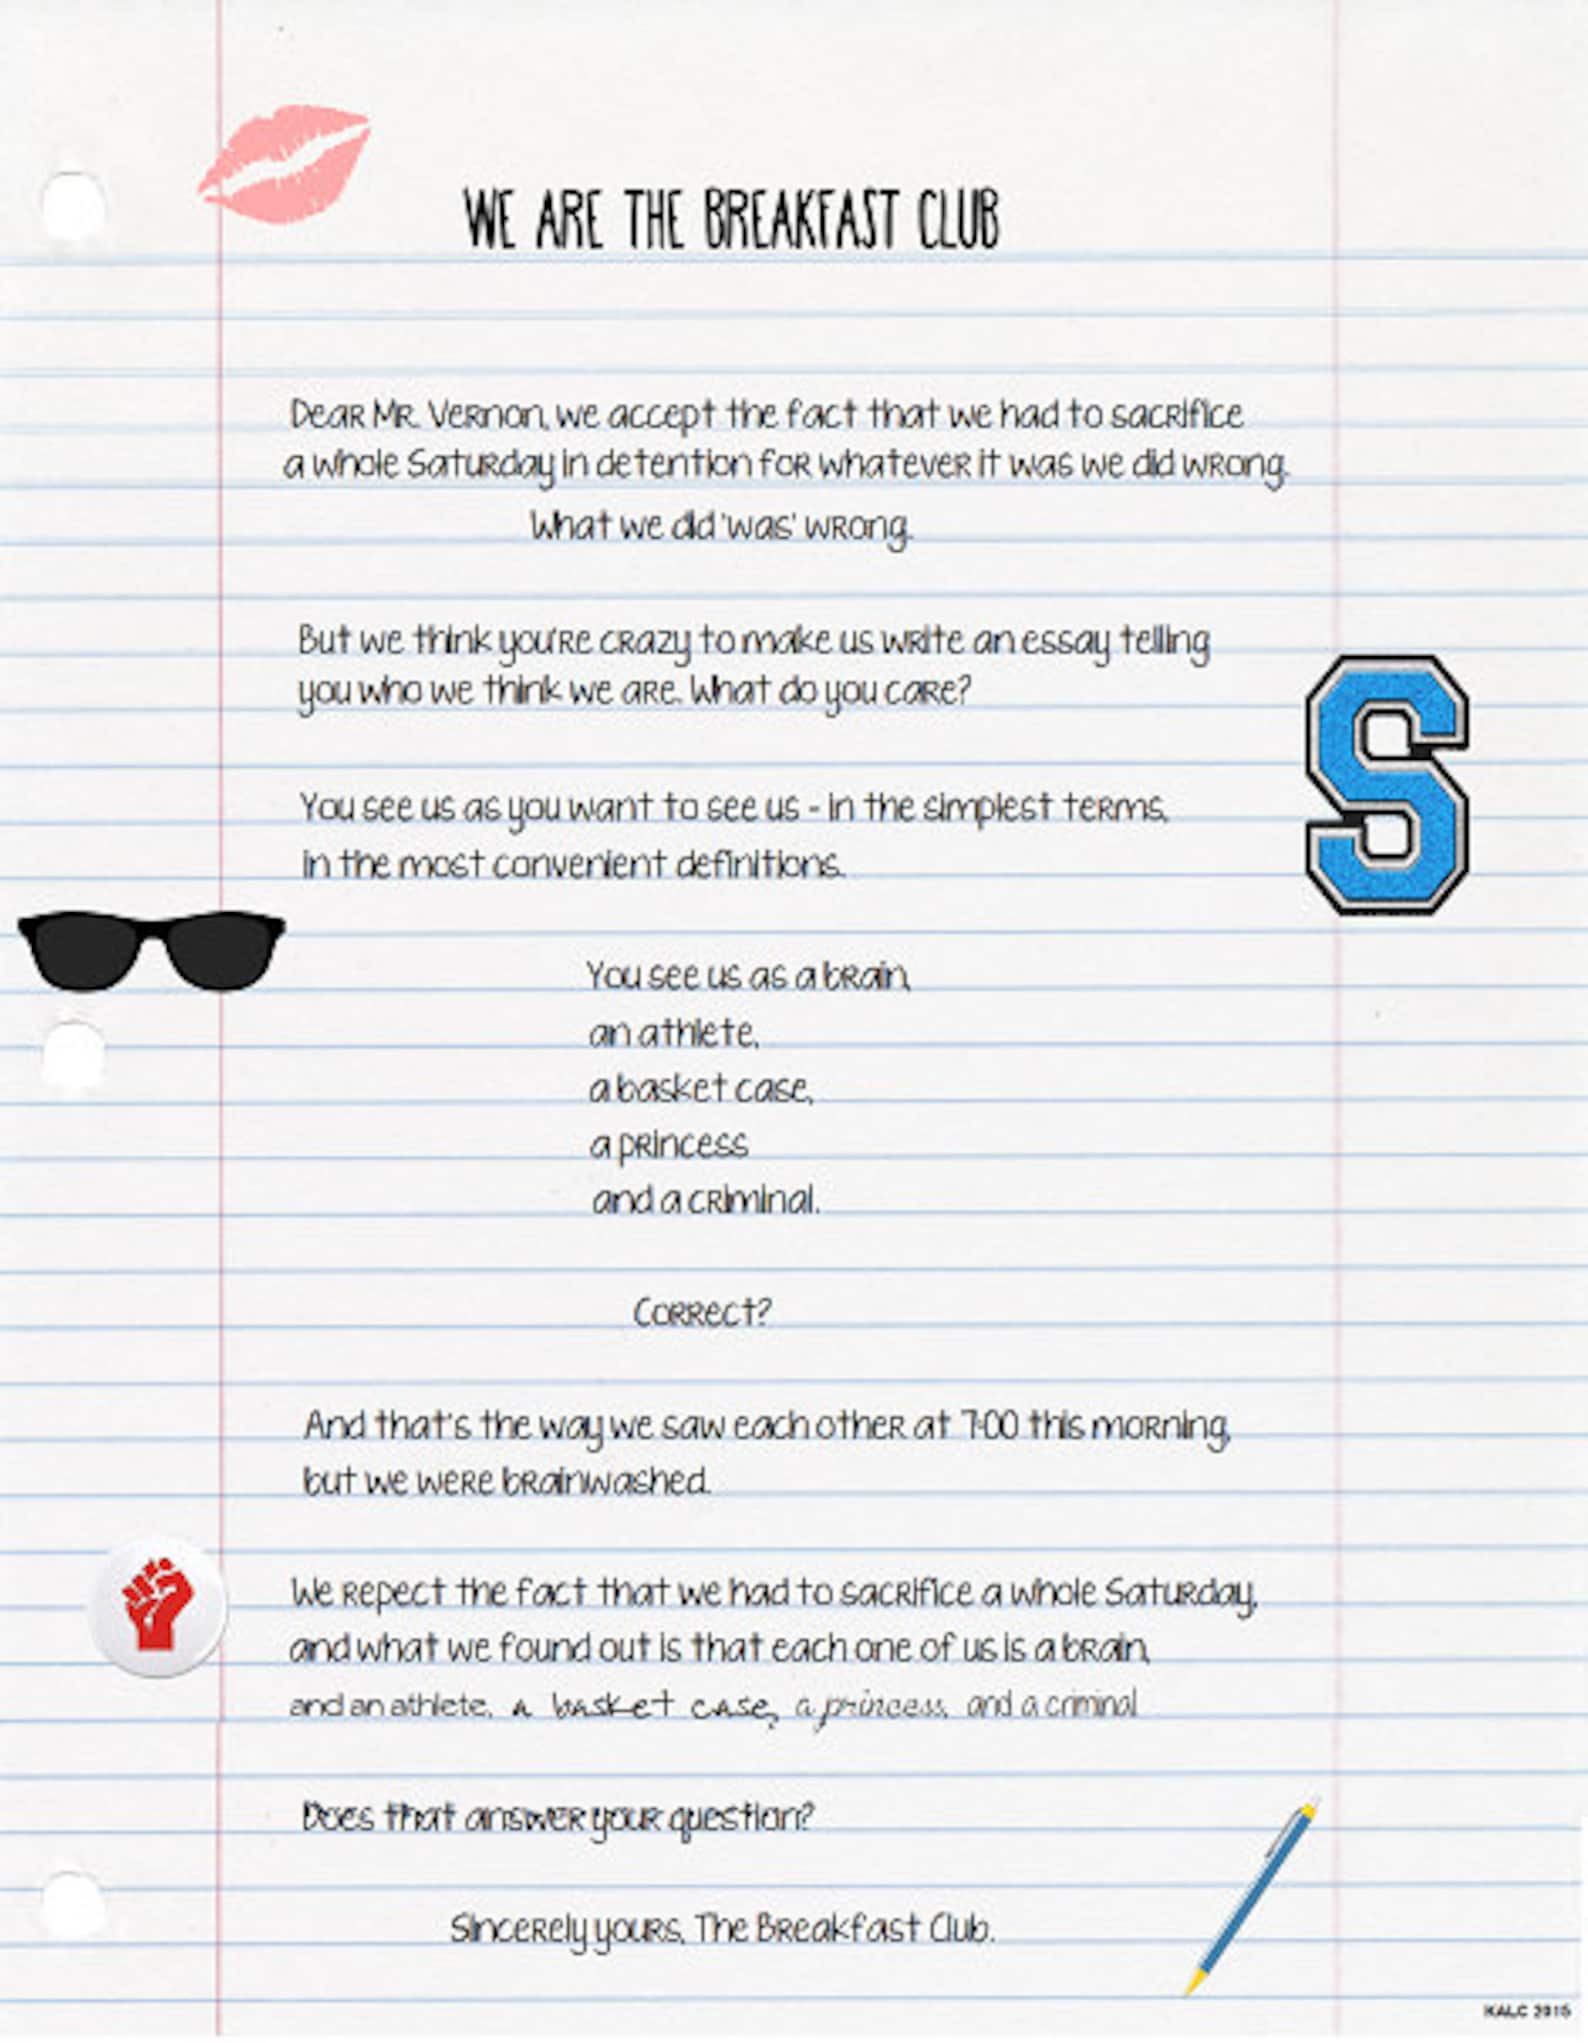 WE ARE THE BREAKFAST CLUB
Dear Mr. Vernon, we accept the fact that we had to sacrifice
a whole Saturday in detention for whatever it was we did wrong.
What we did 'was' wrong.
But we think you're crazy to make us write an essay telling
you who we think we are. What do you care?
You see us as you want to see us - in the simplest terms,
in the most convenient definitions.
S
You see us as a brain,
an athlete,
a basket case,
a princess
and a criminal.
Correct?
And that's the way we saw each other at 7:00 this morning,
but we were brainwashed.
We repect the fact that we had to sacrifice a whole Saturday,
and what we found out is that each one of us is a brain,
and an athlete, a basket case, a princess, and a criminal
Does that answer your question?
Sincerely yours, The Breakfast Club.
KALC 2015